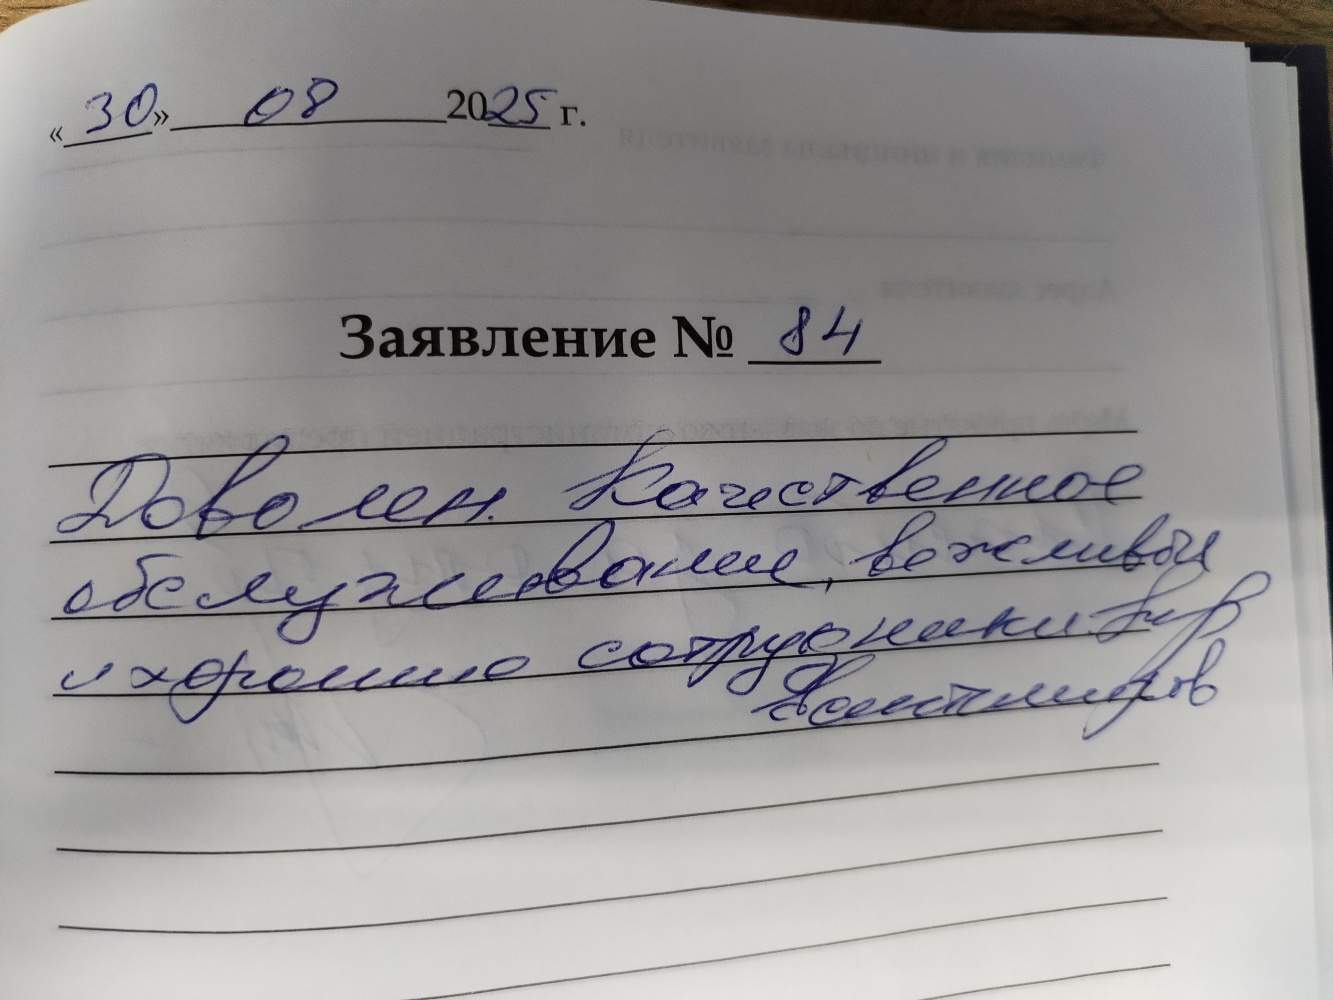 «30» 08 2025 г.
Заявление № 84
Доволен. Качественное
обслуживание, вежливый
и хорошие сотрудники.